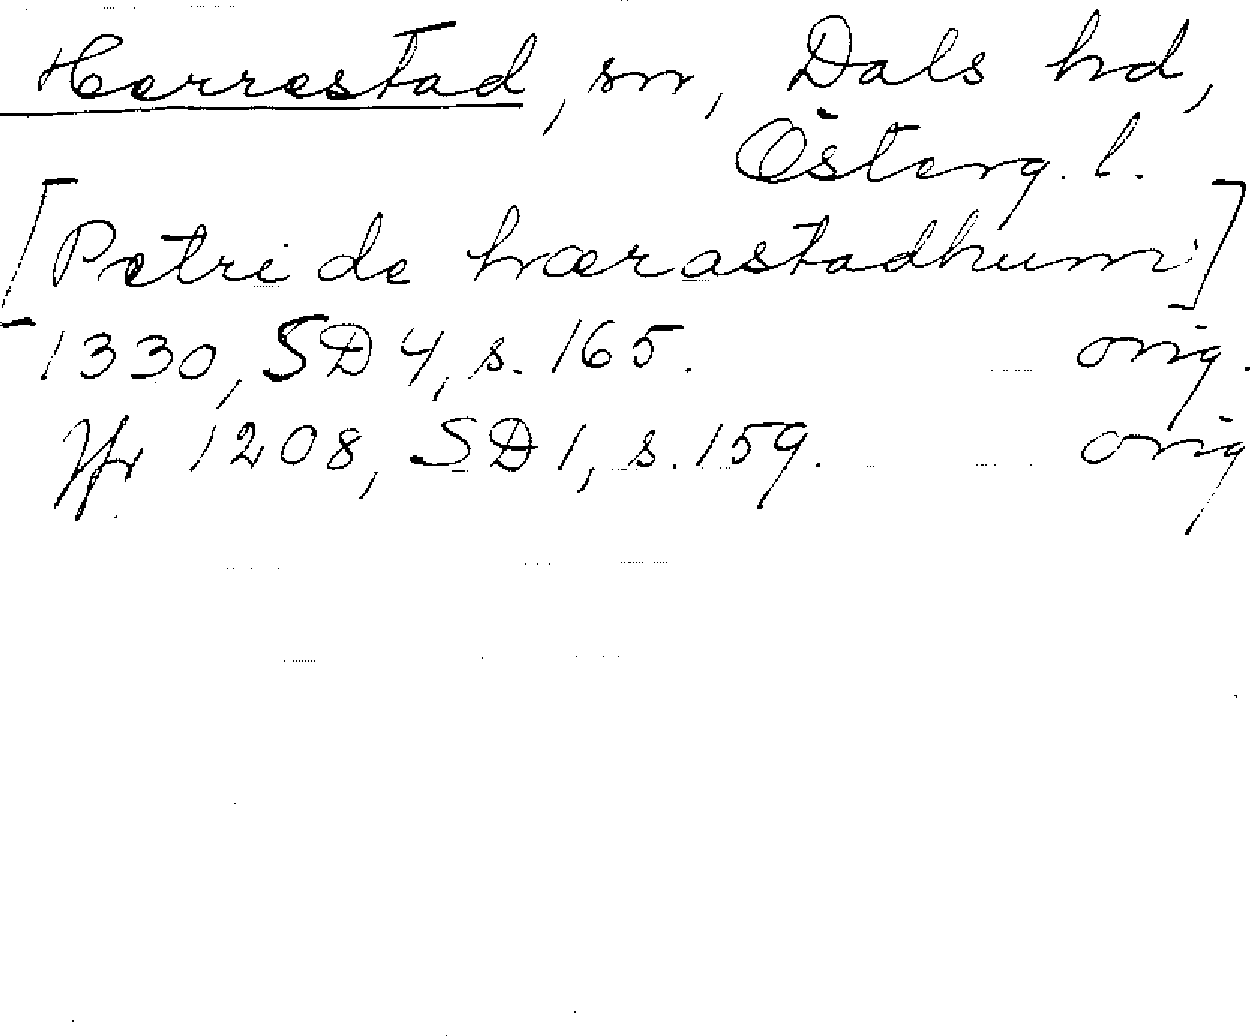 Herrestad, sn, Dals hd,
Österg. l.
[Petri de hærastadhum]
1330, SD 4, s. 165. orig.
Jfr 1208, SD 1, s. 159. orig